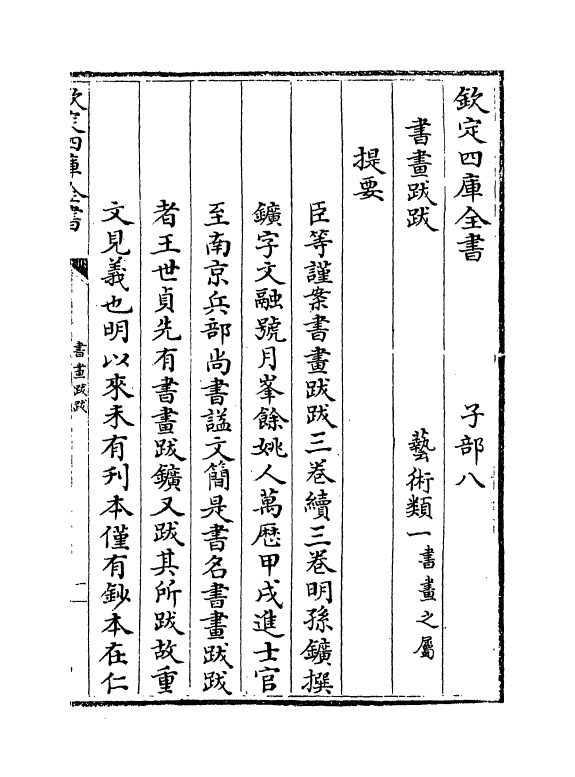 欽定四庫全書　子部八
書畫跋跋　藝術類一書畫之屬
提要
臣等謹案書畫跋跋三卷續三卷明孫鑛撰
鑛字文融號月峯餘姚人萬歷甲戌進士官
至南京兵部尚書諡文簡是書名書畫跋跋
者王世貞先有書畫跋鑛又跋其所跋故重
文見義也明以來未有刋本僅有鈔本在仁
欽定四庫全書
書畫跋跋